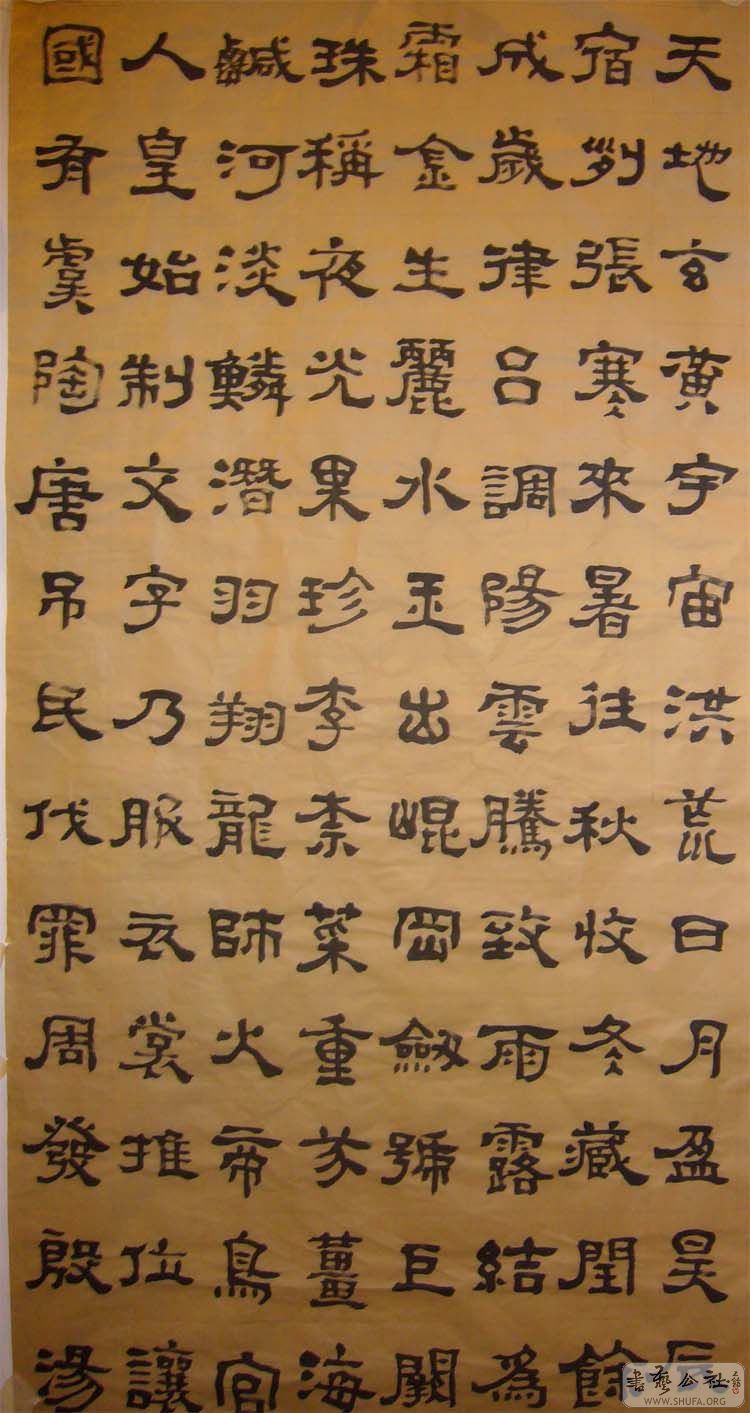 天地玄黃宇宙洪荒日月盈昃辰
宿列張寒來暑往秋收冬藏閏餘
成歲律呂調陽雲騰致雨露結為
霜金生麗水玉出崐岡劒號巨闕
珠稱夜光果珍李柰菜重芥薑海
鹹河淡鱗潛羽翔龍師火帝鳥官
人皇始制文字乃服衣裳推位讓
國有虞陶唐吊民伐罪周發殷湯
書藝公社
WWW.SHUFA.ORG